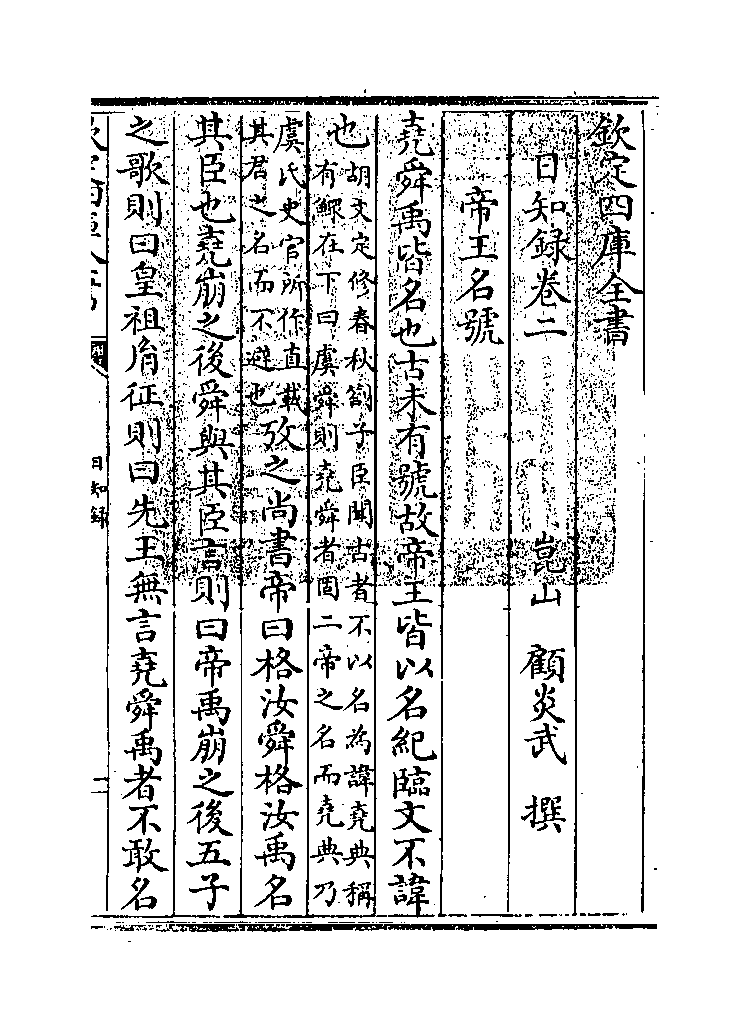 欽定四庫全書
日知録卷二
崑山 顧炎武 撰
帝王名號
堯舜禹皆名也古未有號故帝王皆以名紀臨文不諱
也胡文定修春秋劄子臣聞古者不以名為諱堯典稱
有鰥在下曰虞舜則堯舜者固二帝之名而堯典乃
虞氏史官所作直載
其君之名而不避也攷之尚書帝曰格汝舜格汝禹名
其臣也堯崩之後舜與其臣言則曰帝禹崩之後五子
之歌則曰皇祖𦙍征則曰先王無言堯舜禹者不敢名
日知録
二